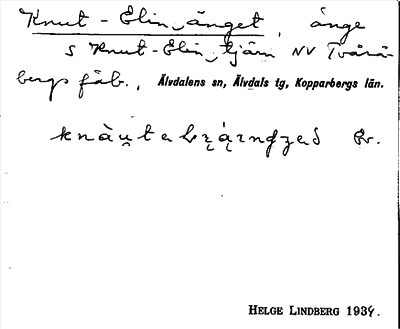 Knut-Elin-änget, änge
S Knut-Elin-tjärn NV Tvärå-
bergs fäb., Älvdalens sn, Älvdals tg, Kopparbergs län.
Bv.
HELGE LINDBERG 1934.